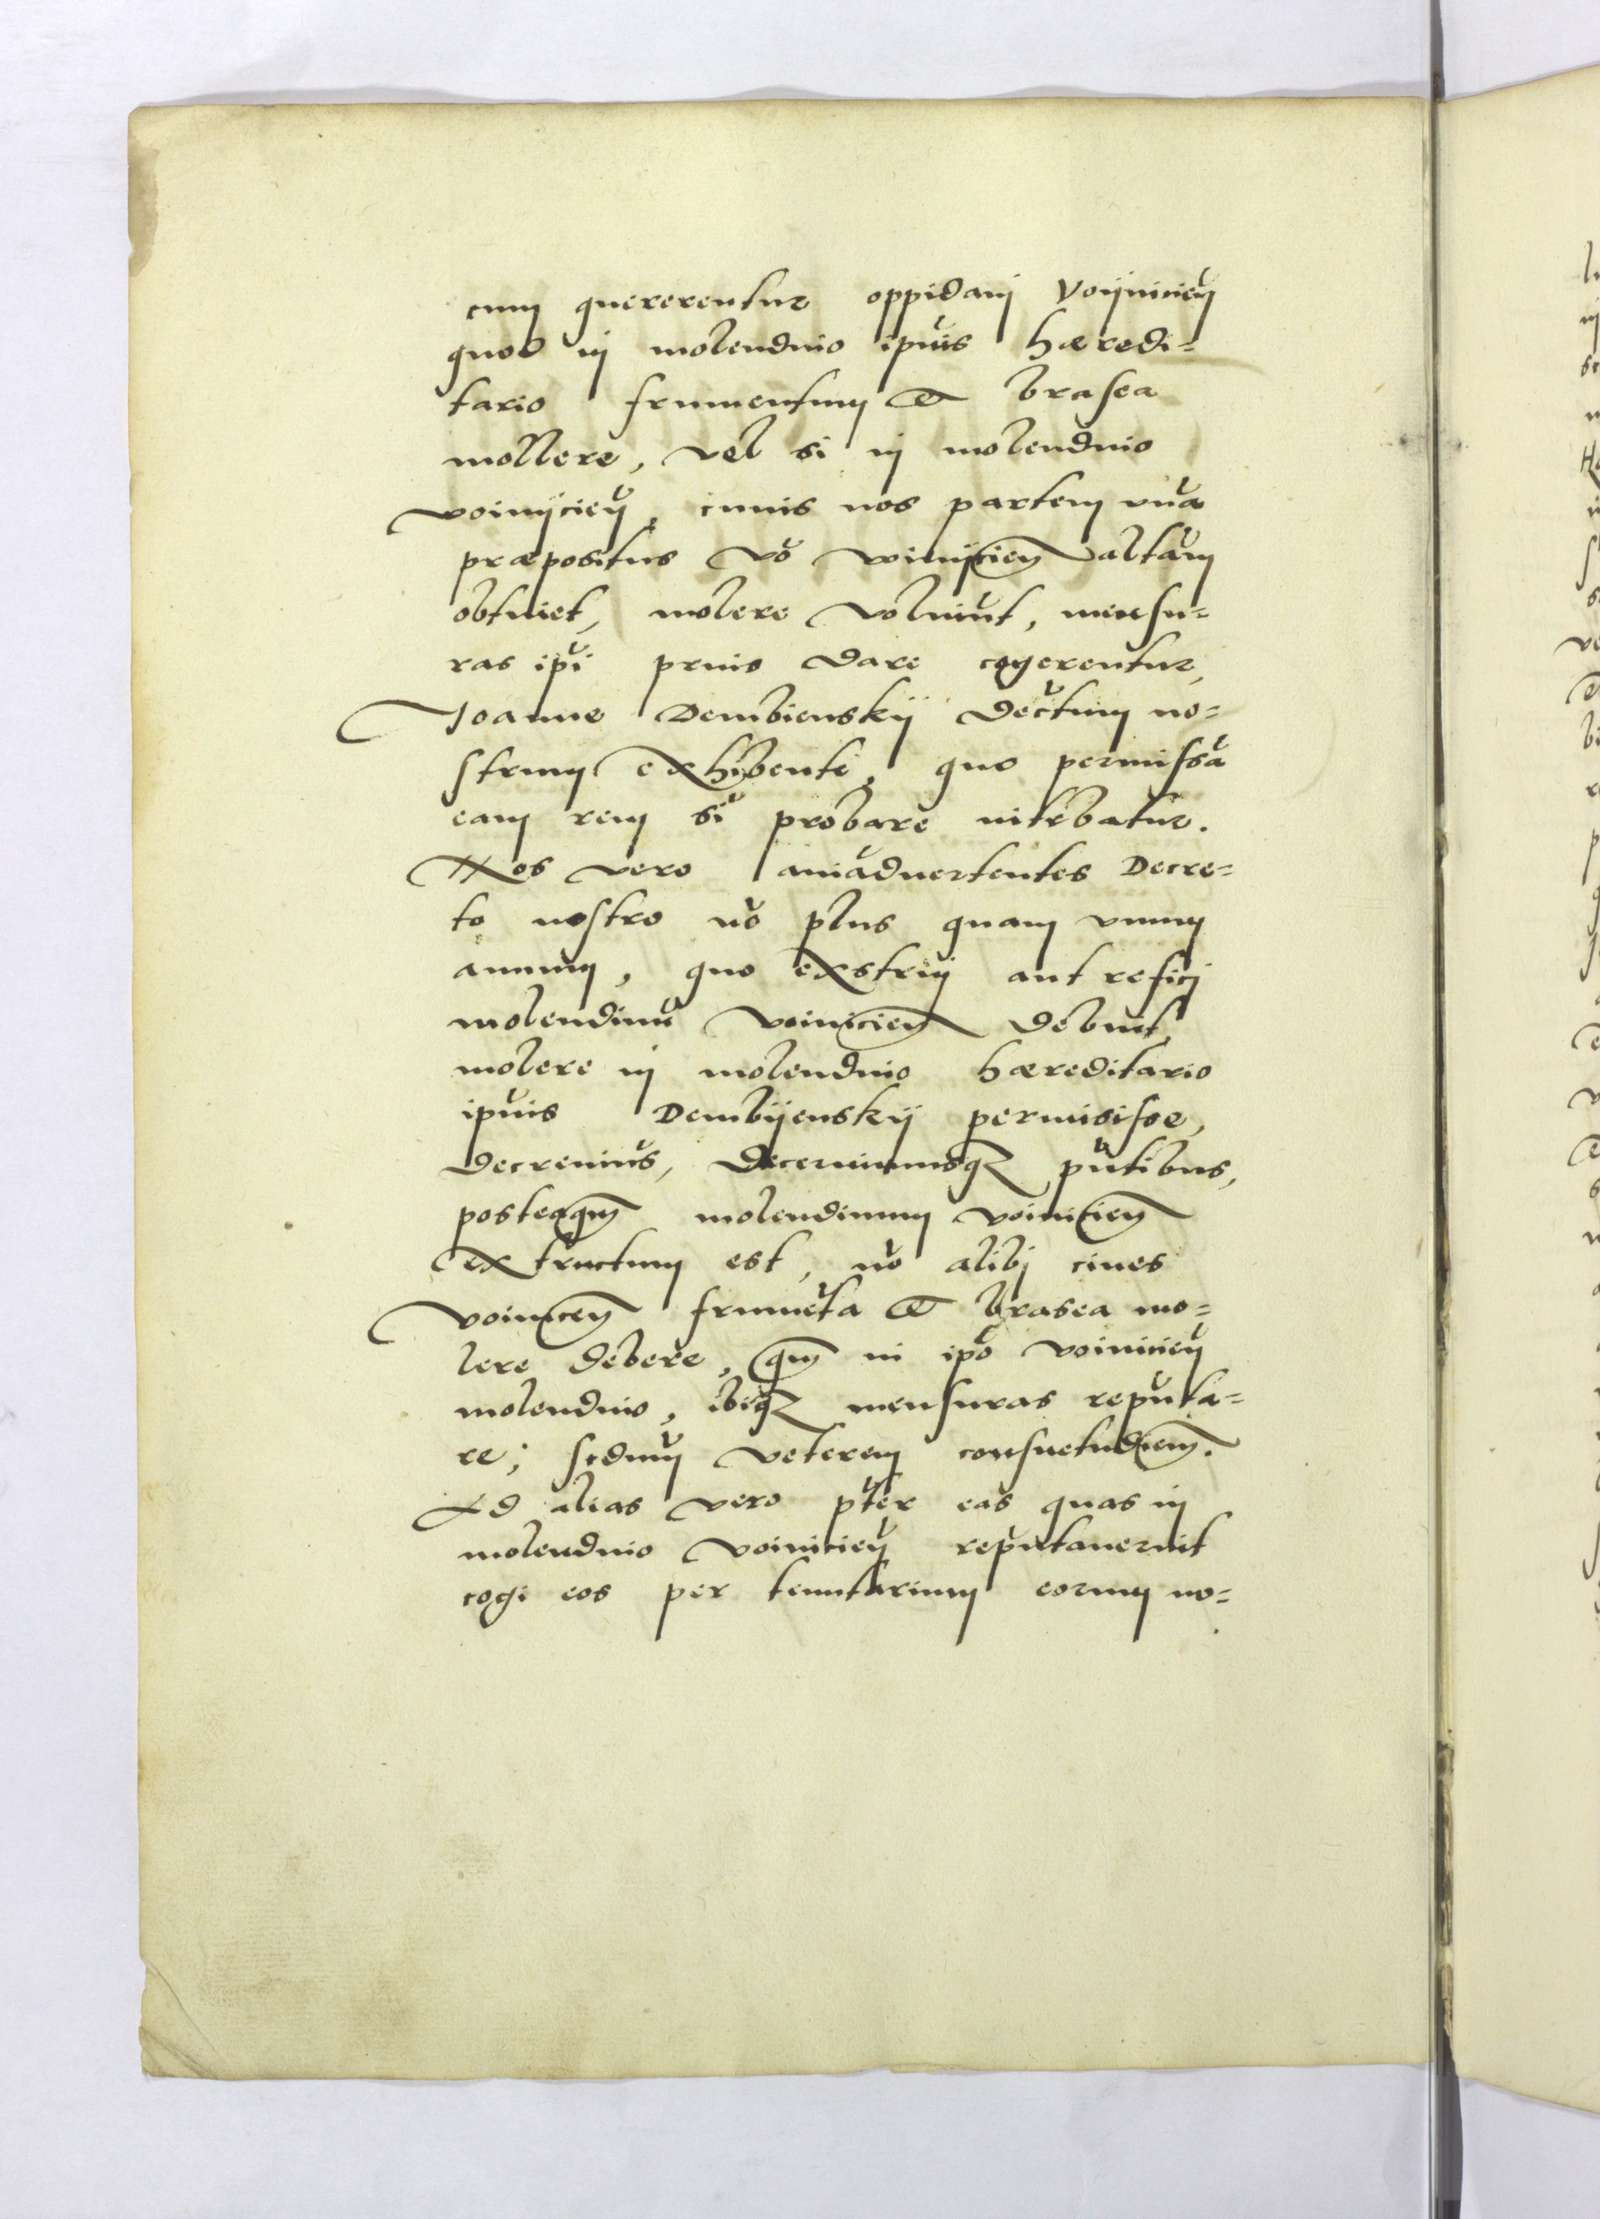 cum quererentur oppidani Voynicien̄
quod in molendino ipīus hæredi=
tario frumentum & brasea
mollere, vel si in molendino
voinyciēn, cuius nos partem vnā
præpositus vō winycien̄ alterā
obtinet, molere voluīut, mensu=
ras ipī prius dare cogerentur,
Joanne Dembienskij decretum no=
strum exhibente, quo permissā
eam rem sī probare nitebatur.
Nos vero aniāduertentes Decre=
to nostro nō plus quam vnum
annum, quo exstrui aut refici
molendinū voinicien̄ debuit,
molere in molendino hæreditario
ipīus Dembijenskij permisisse,
decreuimus, decernimusq₃ pn̄tibus,
posteaqm̄ molendinum voinicien̄
extructum est, nō alibi ciues
voinicen̄ frumēta & brasea mo=
lere debere, qm̄ in ipō voinicien̄
molendino, ibiq₃ mensuras reputa=
re; scdum veterem consuetudinem.
Ad alias vero pr̄ter eas quas in
molendino voinicien̄ reputauerint
cogi eos per tenutarium eorum no=